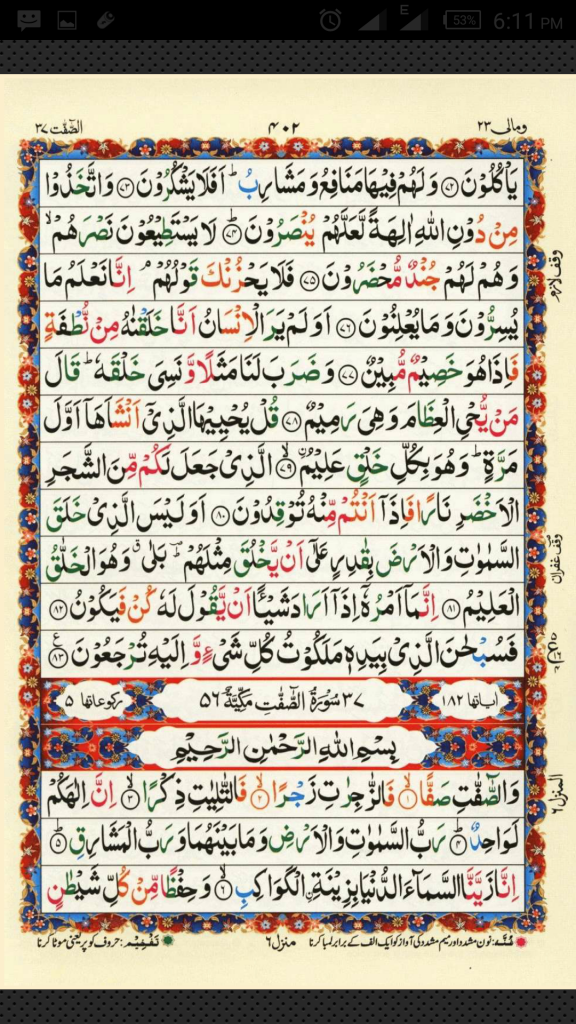 E 53% 6:11 PM
ومالی ۲۳ ۴۰۲ الصّٰفّٰت ۳۷
يَاْكُلُوْنَ ۝۷۲ وَلَهُمْ فِيْهَا مَنَافِعُ وَمَشَارِبُ ؕ اَفَلَا يَشْكُرُوْنَ ۝۷۳ وَاتَّخَذُوْا
مِنْ دُوْنِ اللّٰهِ اٰلِهَةً لَّعَلَّهُمْ يُنْصَرُوْنَ ۝۷۴ؕ لَا يَسْتَطِيْعُوْنَ نَصْرَهُمْ ۙ
وَهُمْ لَهُمْ جُنْدٌ مُّحْضَرُوْنَ ۝۷۵ فَلَا يَحْزُنْكَ قَوْلُهُمْ ۘ اِنَّا نَعْلَمُ مَا
يُسِرُّوْنَ وَمَا يُعْلِنُوْنَ ۝۷۶ اَوَلَمْ يَرَ الْاِنْسَانُ اَنَّا خَلَقْنٰهُ مِنْ نُّطْفَةٍ
فَاِذَا هُوَ خَصِيْمٌ مُّبِيْنٌ ۝۷۷ وَضَرَبَ لَنَا مَثَلًا وَّنَسِيَ خَلْقَهٗ ؕ قَالَ
مَنْ يُّحْيِ الْعِظَامَ وَهِيَ رَمِيْمٌ ۝۷۸ قُلْ يُحْيِيْهَا الَّذِيْۤ اَنْشَاَهَاۤ اَوَّلَ
مَرَّةٍ ؕ وَهُوَ بِكُلِّ خَلْقٍ عَلِيْمٌ ۝۷۹ۙ الَّذِيْ جَعَلَ لَكُمْ مِّنَ الشَّجَرِ
الْاَخْضَرِ نَارًا فَاِذَاۤ اَنْتُمْ مِّنْهُ تُوْقِدُوْنَ ۝۸۰ اَوَلَيْسَ الَّذِيْ خَلَقَ
السَّمٰوٰتِ وَالْاَرْضَ بِقٰدِرٍ عَلٰۤى اَنْ يَّخْلُقَ مِثْلَهُمْ ؕ بَلٰى ۗ وَهُوَ الْخَلّٰقُ
الْعَلِيْمُ ۝۸۱ اِنَّمَاۤ اَمْرُهٗۤ اِذَاۤ اَرَادَ شَيْـًٔا اَنْ يَّقُوْلَ لَهٗ كُنْ فَيَكُوْنُ ۝۸۲
فَسُبْحٰنَ الَّذِيْ بِيَدِهٖ مَلَكُوْتُ كُلِّ شَيْءٍ وَّاِلَيْهِ تُرْجَعُوْنَ ۝۸۳
اٰیاتھا ۱۸۲ ۳۷ سُوْرَةُ الصّٰٓفّٰتِ مَكِّيَّةٌ ۵۶ رکوعاتھا ۵
بِسْمِ اللّٰهِ الرَّحْمٰنِ الرَّحِيْمِ
وَالصّٰٓفّٰتِ صَفًّا ۝۱ۙ فَالزّٰجِرٰتِ زَجْرًا ۝۲ۙ فَالتّٰلِيٰتِ ذِكْرًا ۝۳ۙ اِنَّ اِلٰهَكُمْ
لَوَاحِدٌ ۝۴ؕ رَبُّ السَّمٰوٰتِ وَالْاَرْضِ وَمَا بَيْنَهُمَا وَرَبُّ الْمَشَارِقِ ۝۵ؕ
اِنَّا زَيَّنَّا السَّمَآءَ الدُّنْيَا بِزِيْنَةِ ِ۟الْكَوَاكِبِ ۝۶ۙ وَحِفْظًا مِّنْ كُلِّ شَيْطٰنٍ
وقف لازم
وقف غفران
المنزل ۶
غُنَّه: نون مشدد اور میم مشدد کی آواز کو ایک الف کے برابر لمبا کرنا منزل ۶ تَفْخِيْم: حروف کو پُر یعنی موٹا کرنا